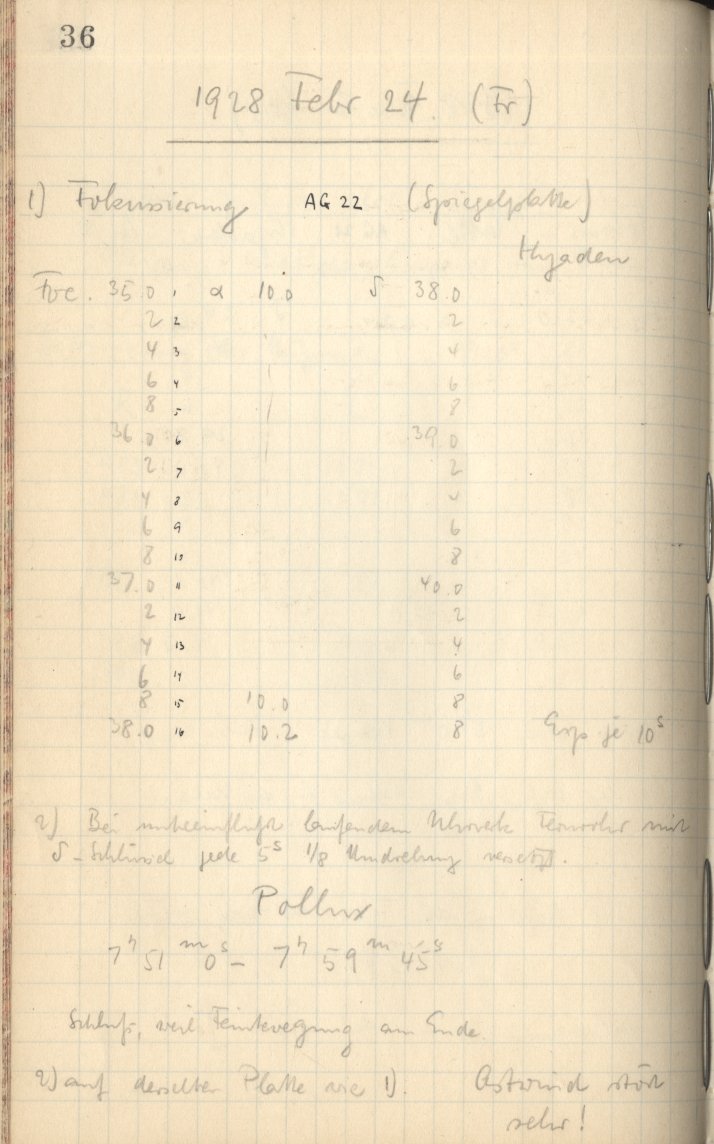 36
1928 Febr 24. (Fr)
1) Fokussierung AG 22 (Spiegelplatte)
Hyaden
Foc. 35.0 1 α 10.0 δ 38.0
2 2 2
4 3 4
6 4 6
8 5 8
36.0 6 39.0
2 7 2
4 8 4
6 9 6
8 10 8
37.0 11 40.0
2 12 2
4 13 4
6 14 6
8 15 10.0 8
38.0 16 10.2 8 Exp je 10s
2) Bei unbeeinflußt laufendem Uhrwerk Fernrohr mit
δ-Schlüssel jede 5s 1/8 Umdrehung versetzt.
Pollux
7h 51m 0s – 7h 59m 45s
Schluß, weil Feinbewegung am Ende.
2) auf derselben Platte wie 1). Ostwind stört
sehr!